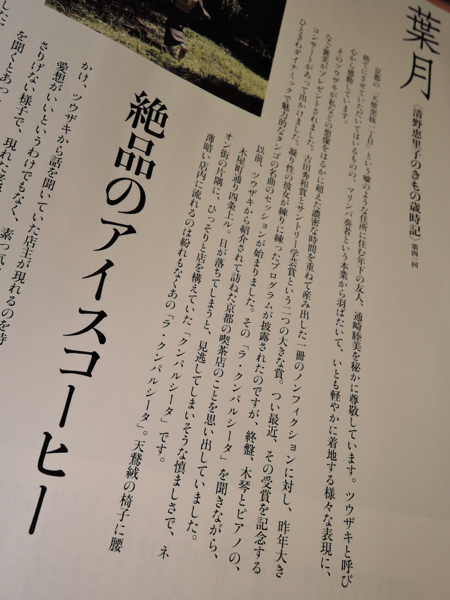 葉月
〈清野恵里子のきもの歳時記〉第四一回
絶品のアイスコーヒー
京都の「天使突抜一丁目」という嘘のような住所に住む年下の友人、通崎睦美を秘かに尊敬しています。ツウザキと呼び
捨てにさせていただいてはいるものの、マリンバ奏者という本業から羽ばたいて、いとも軽やかに着地する様々な表現に、
心から感動しています。
そのツウザキが私などの想像をはるかに超えた濃密な時間を重ねて産み出した一冊のノンフィクションに対し、昨年大き
なご褒美がプレゼントされました。吉田秀和賞とサントリー学芸賞という二つの大きな賞。つい最近、その受賞を記念する
コンサートがあって出かけました。凝り性の彼女が練りに練ったプログラムが披露されたのですが、終盤、木琴とピアノの、
ひときわダイナミックで魅力的なタンゴの名曲のセッションが始まりました。その「ラ・クンパルシータ」を聞きながら、
以前、ツウザキから紹介されて訪ねた京都の喫茶店のことを思い出していました。
木屋町通り四条上ル。日が落ちてしまうと、見逃してしまいそうな慎ましさで、ネ
オン街の片隅に、ひっそりと店を構えていた「クンパルシータ」です。
薄暗い店内に流れるのは紛れもなくあの「ラ・クンパルシータ」。天鵞絨の椅子に腰
かけ、ツウザキから話を聞いていた店主が現れるのを待
愛想がいいというわけでもなく、素っ気
さりげない様子で、現れ
を聞くとあっ